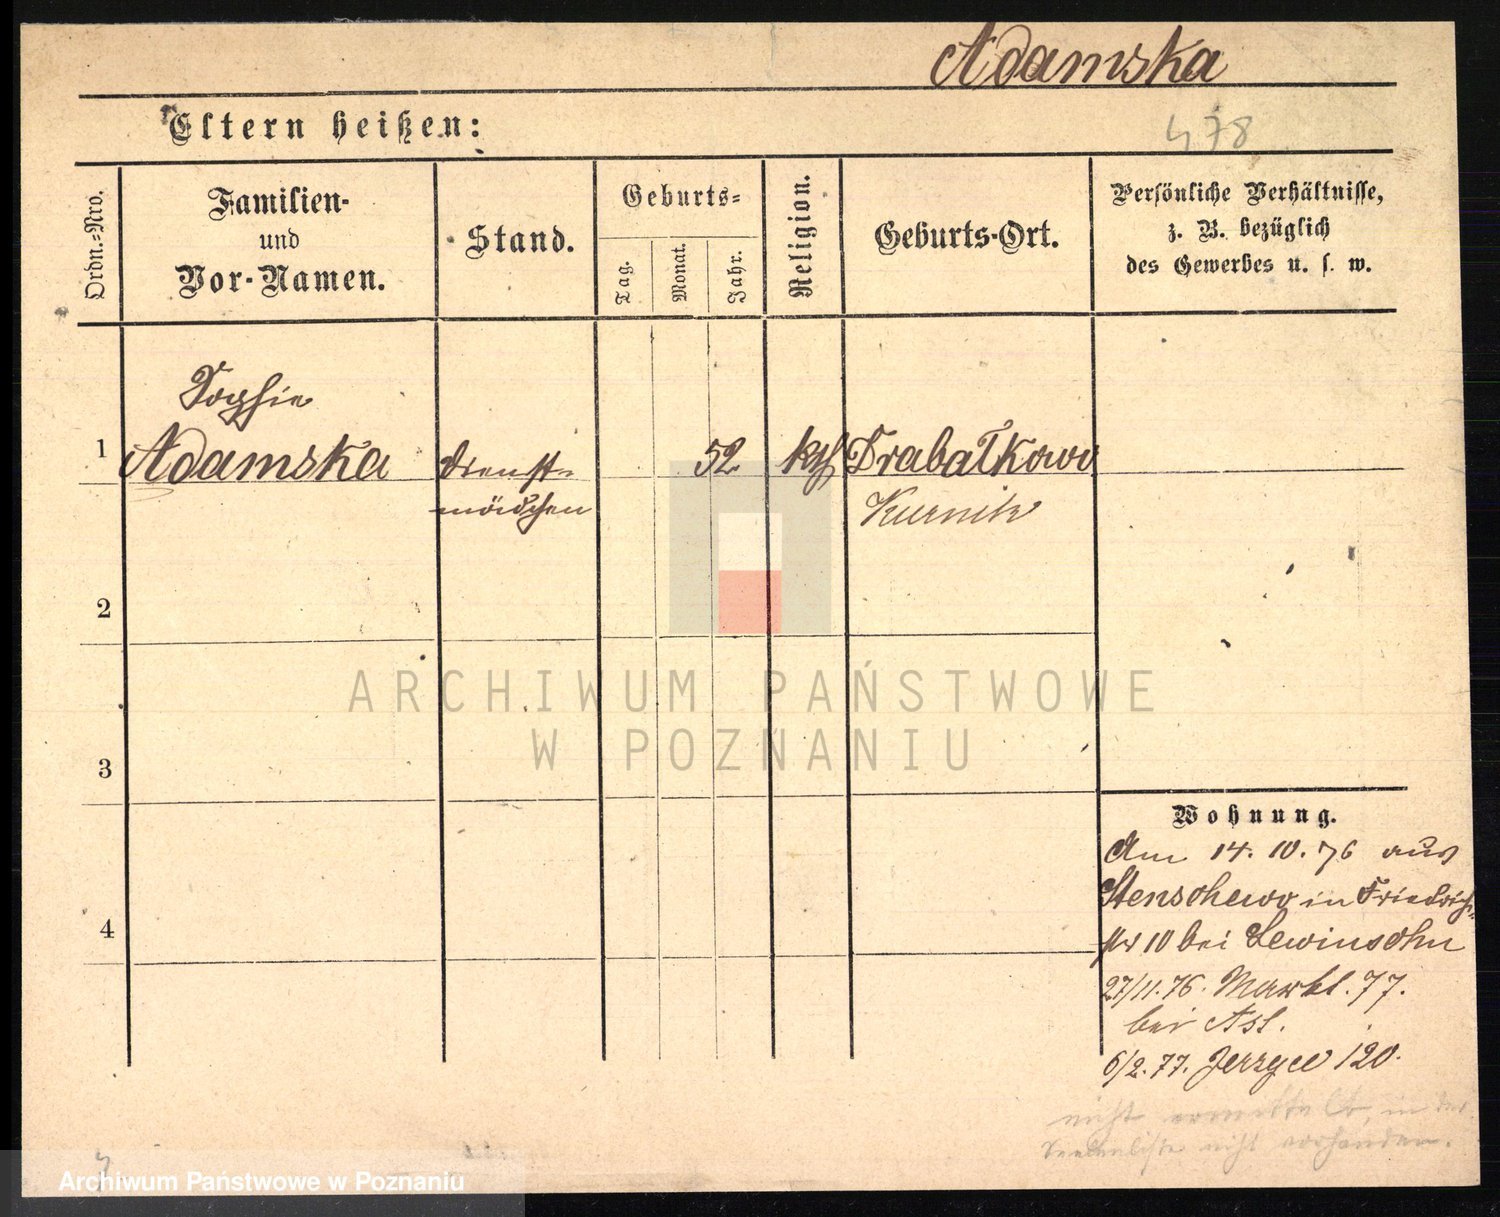 Adamska
Eltern heißen:
478
Ordn.-Nro.
Familien-
und
Vor-Namen.
Stand.
Geburts-
Tag.
Monat.
Jahr.
Religion.
Geburts-Ort.
Persönliche Verhältnisse,
z. B. bezüglich
des Gewerbes u. s. w.
Sophie
1 Adamska dienst- 52 kth Drabatkowo
mädchen Kurnik
2
3
4
Wohnung.
Am 14. 10. 76 aus
Stenschewo in Friedrich-
str 10 bei Lewinsohn
27/11. 76. Markt. 77.
bei
6/2. 77. Jerzyce 120.
nicht ermittelt, in der
Seelenliste nicht vorhanden.
ARCHIWUM PAŃSTWOWE
W POZNANIU
Archiwum Państwowe w Poznaniu